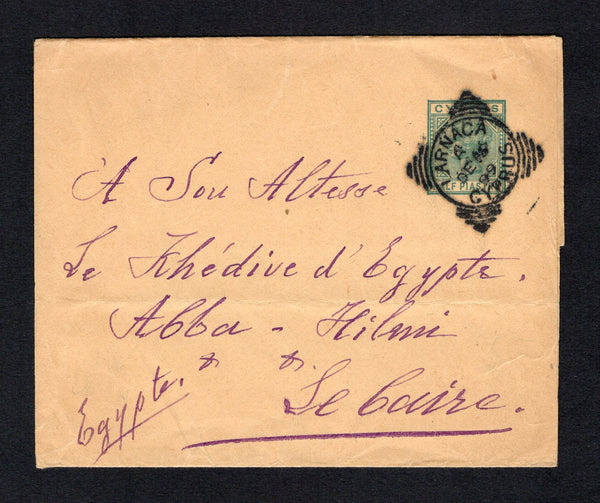 CYPRUS
LARNACA
CYPRUS
HALF PIASTRE
A Son Altesse
Le Khédive d'Egypte.
Abba - Hilmi
Le Caire.
Egypte.